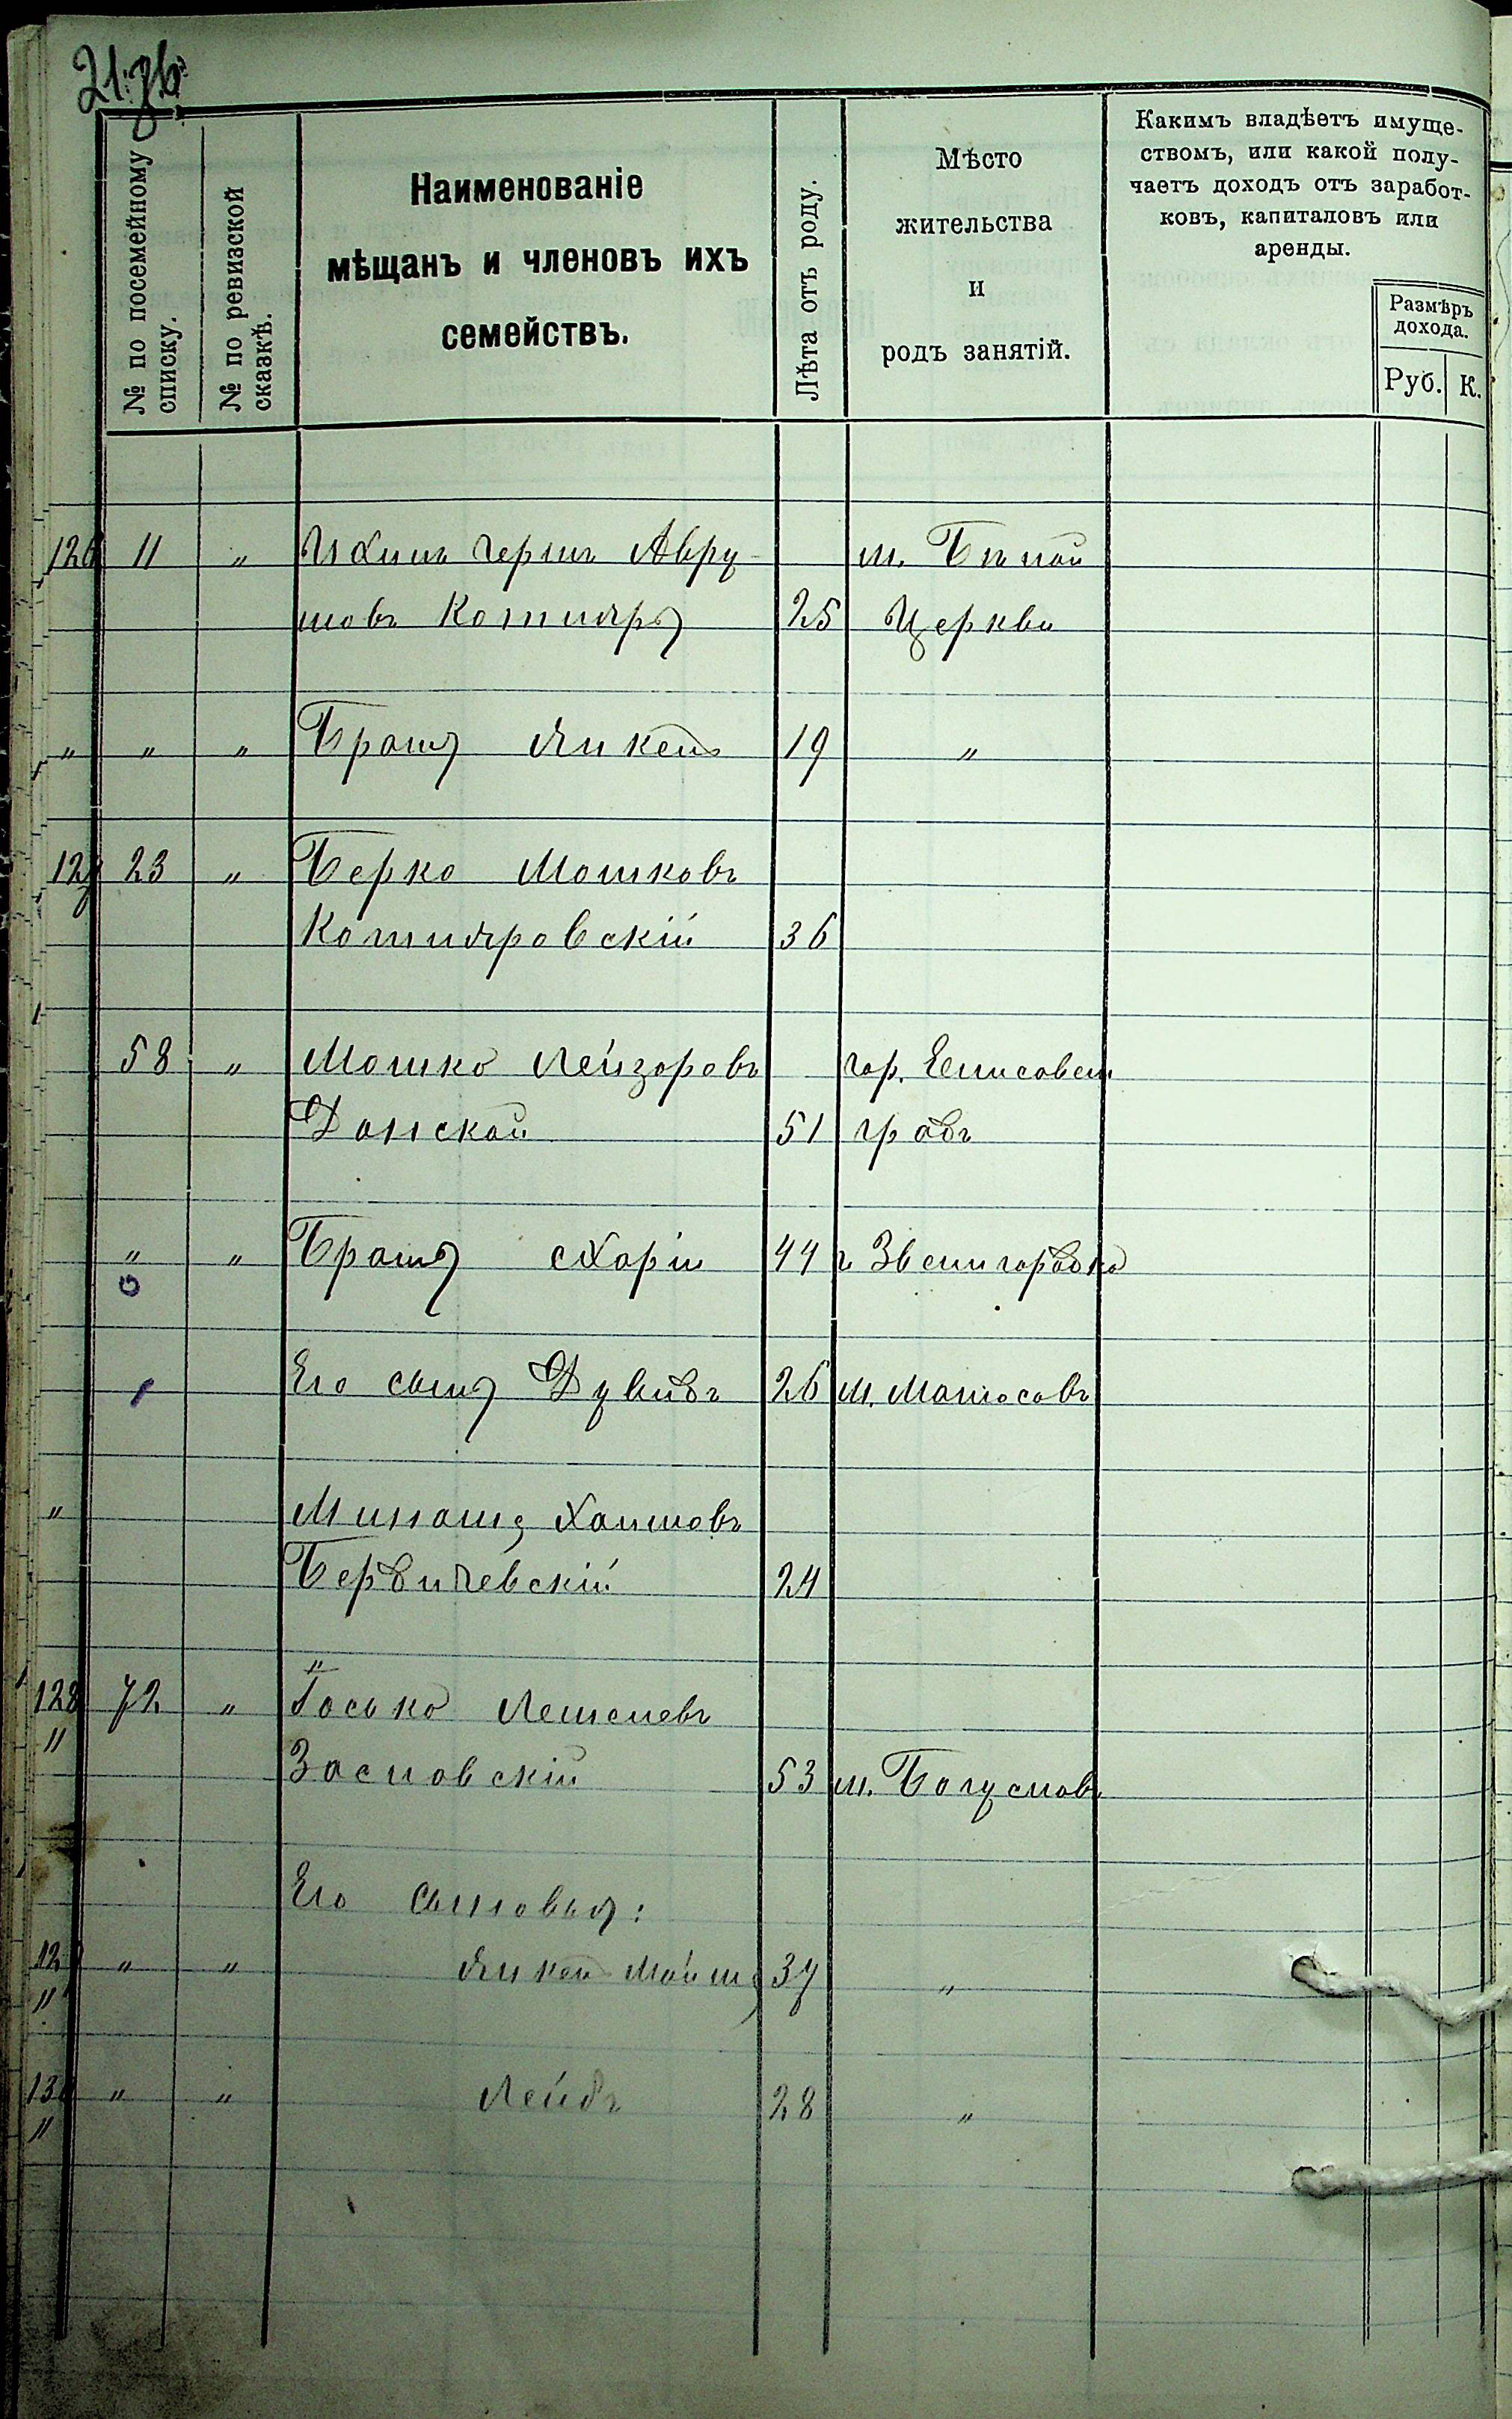 № по посемейному списку.
№ по ревизской сказкѣ.
Наименованіе
мѣщанъ и членовъ ихъ
семействъ.
Лѣта отъ роду.
Мѣсто
жительства
и
родъ занятій.
Какимъ владѣетъ имуще-
ствомъ, или какой полу-
чаетъ доходъ отъ заработ-
ковъ, капиталовъ или
аренды.
Размѣръ
дохода.
Руб. К.
126 11 " Гершъ Авру- м. Бѣлой
мовъ Котляръ 25 Церкви
" " " Братъ Янкель 19 "
127 23 " Берко Мошковъ
Котляровскій 36
58 " Мошко Лейзоровъ гор. Елисавет
Донской 51 градъ
" " Братъ 44 г. Звенигородка
Его сынъ Дувидъ 26 м. Матусовъ
" Хаимовъ
Бердичевскій 24
128 72 " Іосько
" Заславскій 53 м. Богуславъ
Его сыновья:
" " Янкель 37 "
"
130 " " Лейбъ 28 "
"